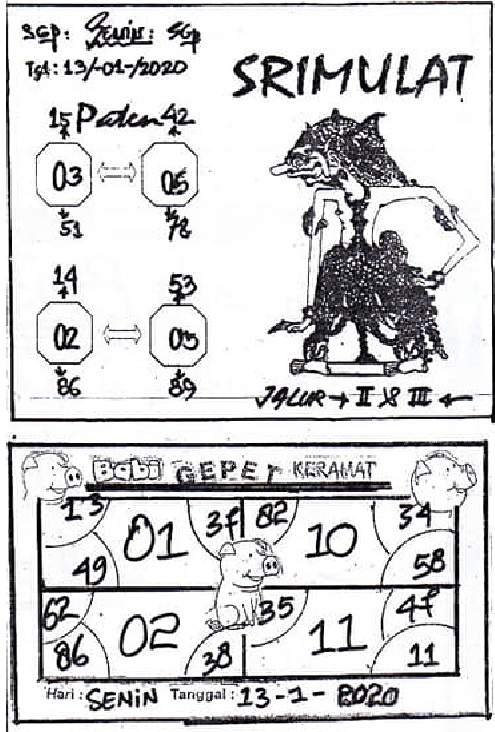 SGP: Senin: SGp
Tgl: 13/-01-/2020
SRIMULAT
15 Paten 42
03 05
51 78
14 53
02 05
86 89
JALUR → II & III ←
Babi GEPEr KERAMAT
13 37 82 34
01 10
49 58
62 35 47
02 11
86 38 11
Hari: SENiN Tanggal: 13-1-2020